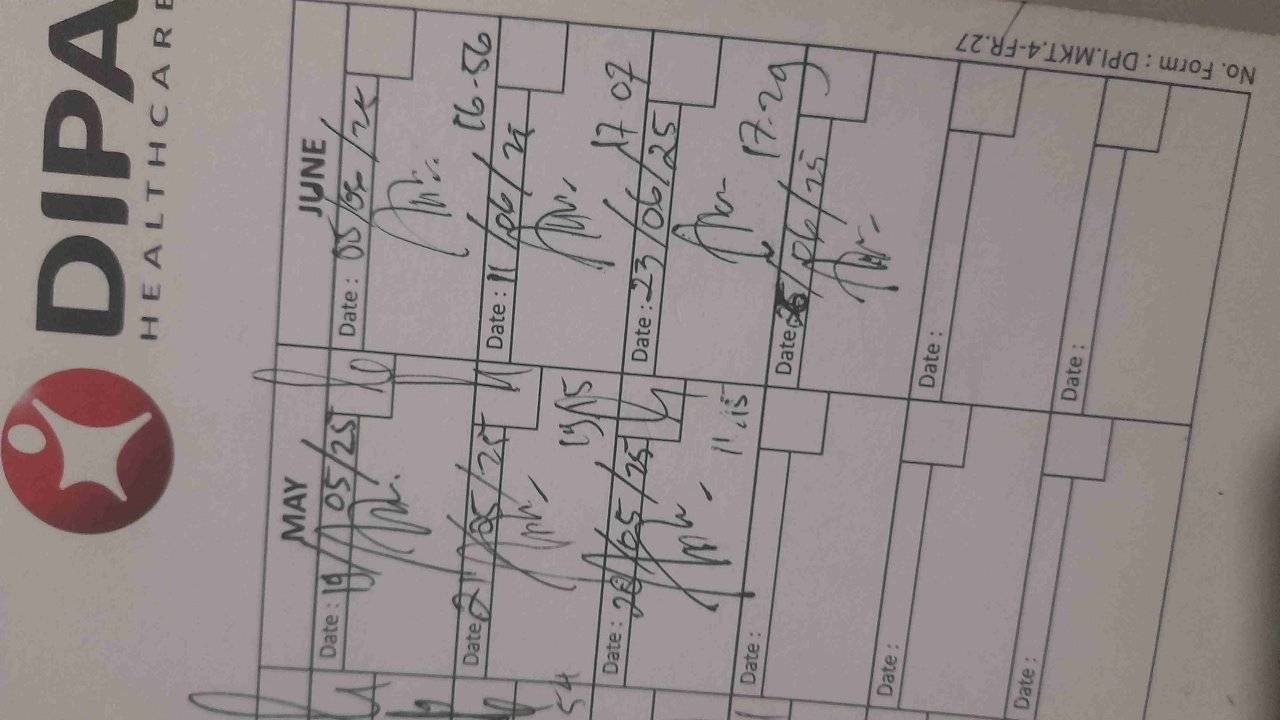 DIPA
HEALTHCARE
MAY
Date : 19/05/25
Date : 21/05/25
Date : 28/05/25
11.15
Date :
Date :
Date :
54
JUNE
Date : 05/06/25
16-56
Date : 11/06/25
17 07
Date : 23/06/25
17-29
Date : /06/25
Date :
Date :
No. Form : DPI.MKT.4-FR.27